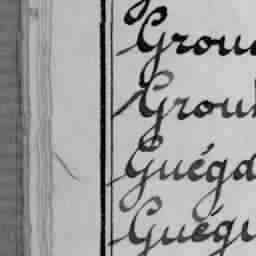 Grou
Grou
Guég
Guég